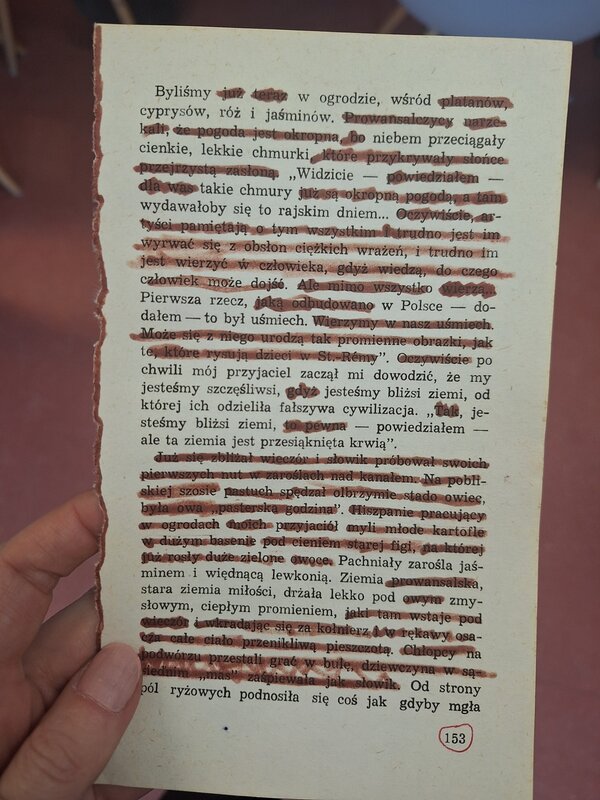 Byliśmy już teraz w ogrodzie, wśród platanów,
cyprysów, róż i jaśminów. Prowansalczycy narze-
kali, że pogoda jest okropna, bo niebem przeciągały
cienkie, lekkie chmurki, które przykrywały słońce
przejrzystą zasłoną. „Widzicie — powiedziałem —
dla was takie chmury już są okropną pogodą, a tam
wydawałoby się to rajskim dniem... Oczywiście, ar-
tyści pamiętają o tym wszystkim i trudno jest im
wyrwać się z obsłon ciężkich wrażeń, i trudno im
jest wierzyć w człowieka, gdyż wiedzą, do czego
człowiek może dojść. Ale mimo wszystko wierzą.
Pierwsza rzecz, jaką odbudowano w Polsce — do-
dałem — to był uśmiech. Wierzymy w nasz uśmiech.
Może się z niego urodzą tak promienne obrazki, jak
te, które rysują dzieci w St.-Rémy”. Oczywiście po
chwili mój przyjaciel zaczął mi dowodzić, że my
jesteśmy szczęśliwsi, gdyż jesteśmy bliżsi ziemi, od
której ich odzieliła fałszywa cywilizacja. „Tak, je-
steśmy bliżsi ziemi, to pewna — powiedziałem —
ale ta ziemia jest przesiąknięta krwią”.
Już się zbliżał wieczór i słowik próbował swoich
pierwszych nut w zaroślach nad kanałem. Na pobli-
skiej szosie pastuch spędzał olbrzymie stado owiec,
była owa „pasterska godzina”. Hiszpanie pracujący
w ogrodach moich przyjaciół myli młode kartofle
w dużym basenie pod cieniem starej figi, na której
już rosły duże zielone owoce. Pachniały zarośla jaś-
minem i więdnącą lewkonią. Ziemia prowansalska,
stara ziemia miłości, drżała lekko pod owym zmy-
słowym, ciepłym promieniem, jaki tam wstaje pod
wieczór i wkradając się za kołnierz i w rękawy osa-
cza całe ciało przenikliwą pieszczotą. Chłopcy na
podwórzu przestali grać w bulę, dziewczyna w są-
siednim „mas” zaśpiewała jak słowik. Od strony
pól ryżowych podnosiła się coś jak gdyby mgła
153